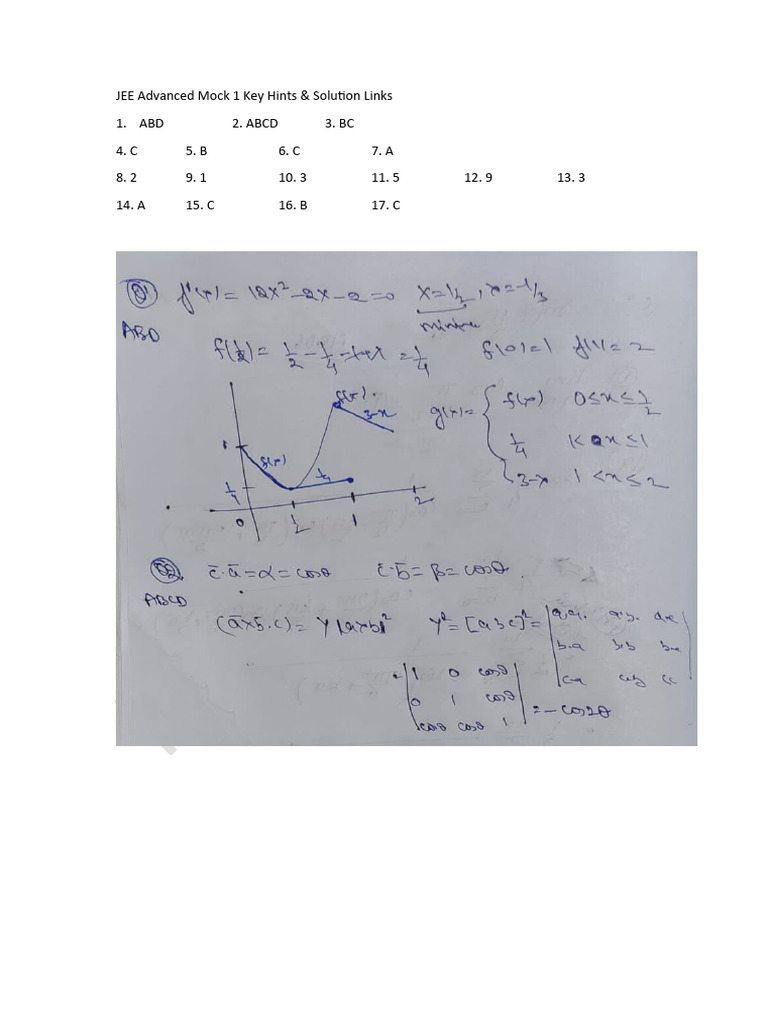 JEE Advanced Mock 1 Key Hints & Solution Links
1. ABD 2. ABCD 3. BC
4. C 5. B 6. C 7. A
8. 2 9. 1 10. 3 11. 5 12. 9 13. 3
14. A 15. C 16. B 17. C
Q1 f'(x) = 12x² - 2x - 2 = 0 x = 1/2, x = -1/3
ABD
f(1/2) = 1/2 - 1/4 = 1/4 f(0) = 1 f(1) = 2
f(x).
3-x
g(x) = { f(x) 0 ≤ x ≤ 1/2
1 f(x)
1/4 x ≤ 1
1/4 1/4
3-x 1 < x ≤ 2
0 1/2 1 2
Q2 c̄·ā = α = cosθ c̄·b̄ = β = cosθ.
ABCD
(ā×b̄.c) = γ|a×b|² γ² = [a b c]² = | a.a. a.b. a.c |
| b.a b.b b.c |
= | 1 0 cosθ | | c.a c.b c.c |
| 0 1 cosθ |
| cosθ cosθ 1 | = - cos2θ